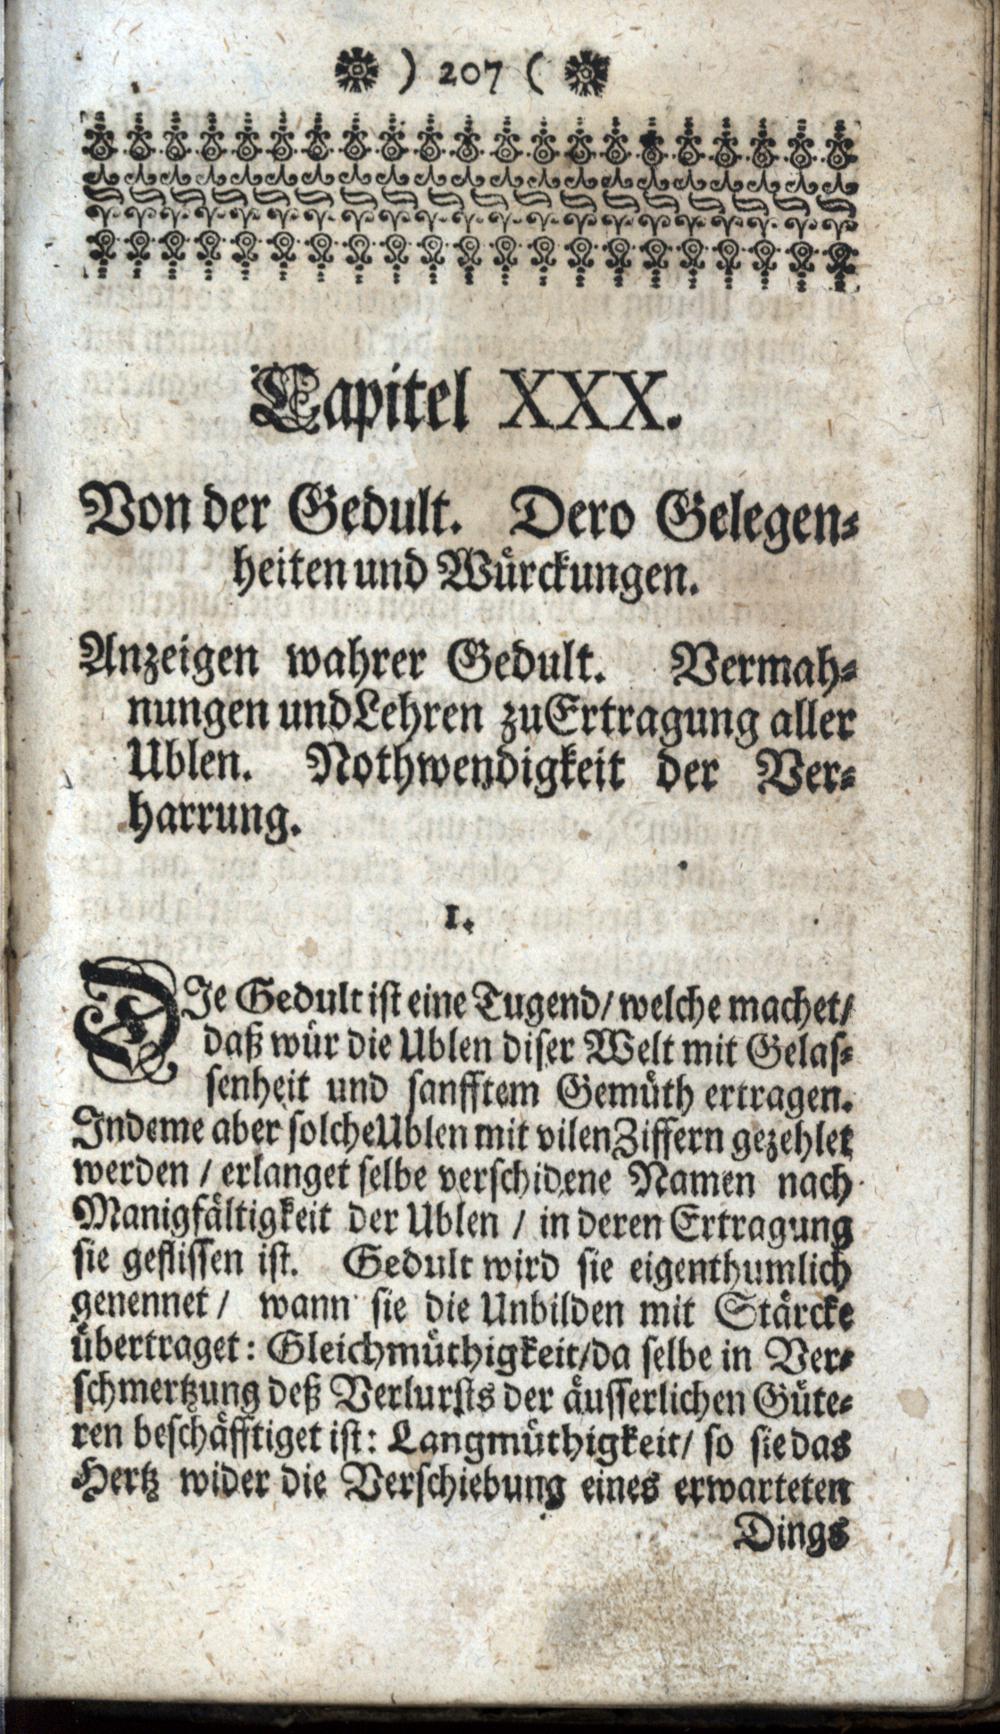 ) 207 (
Capitel XXX.
Von der Gedult. Dero Gelegen-
heiten und Würckungen.
Anzeigen wahrer Gedult. Vermah-
nungen und Lehren zu Ertragung aller
Ublen. Nothwendigkeit der Ver-
harrung.
1.
DIe Gedult ist eine Tugend/ welche machet/
daß wür die Ublen diser Welt mit Gelas-
senheit und sanfftem Gemüth ertragen.
Indeme aber solche Ublen mit vilen Ziffern gezehlet
werden / erlanget selbe verschidene Namen nach
Manigfältigkeit der Ublen / in deren Ertragung
sie geflissen ist. Gedult wird sie eigenthumlich
genennet / wann sie die Unbilden mit Stärcke
übertraget: Gleichmüthigkeit/ da selbe in Ver-
schmertzung deß Verlursts der äusserlichen Güte-
ren beschäfftiget ist: Langmüthigkeit/ so sie das
Hertz wider die Verschiebung eines erwarteten
Dings